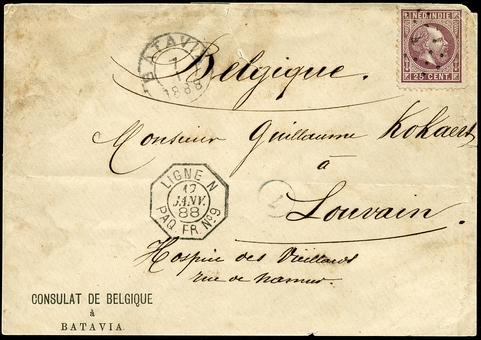 NED. INDIE
25 CENT.
BATAVIA
7
1
1888
Belgique.
Monsieur Guillaume Kokaert
à
Louvain.
LIGNE N
17
JANV.
88
PAQ. FR. Nº9
Hospice des Vieillards
rue de Namur.
CONSULAT DE BELGIQUE
à
BATAVIA.